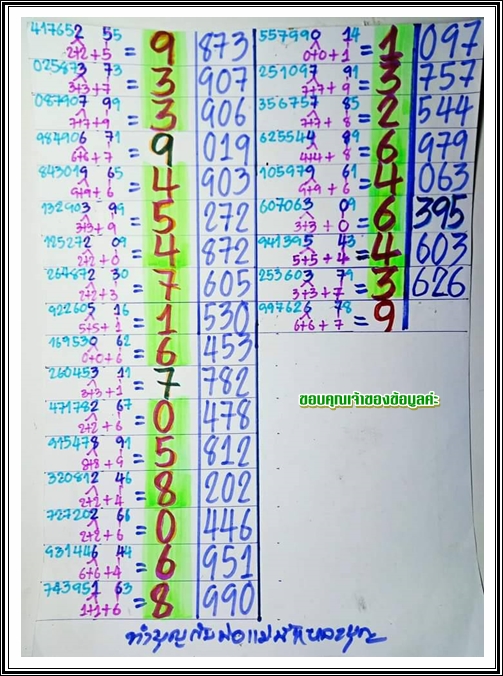 417652 55
2+2+5 = 9 873
025873 73
3+3+7 = 3 907
087907 99
7+7+9 = 3 906
984906 71
6+6+7 = 9 019
843019 65
9+9+6 = 4 903
132903 99
3+3+9 = 5 272
125272 09
2+2+0 = 4 872
264872 30
2+2+3 = 7 605
922605 16
5+5+1 = 1 530
169530 62
0+0+6 = 6 453
260453 11
3+3+1 = 7 782
471782 67
2+2+6 = 0 478
915478 91
8+8+9 = 5 812
320812 46
2+2+4 = 8 202
727202 66
2+2+6 = 0 446
931446 44
6+6+4 = 6 951
743951 63
1+1+6 = 8 990
557990 14
0+0+1 = 1 097
251097 91
7+7+9 = 3 757
356757 85
7+7+8 = 2 544
625544 89
4+4+8 = 6 979
105979 61
9+9+6 = 4 063
607063 09
3+3+0 = 6 395
941395 43
5+5+4 = 4 603
253603 79
3+3+7 = 3 626
997626 78
6+6+7 = 9
ขอบคุณเจ้าของข้อมูลค่ะ
ทำบุญกับพ่อแม่